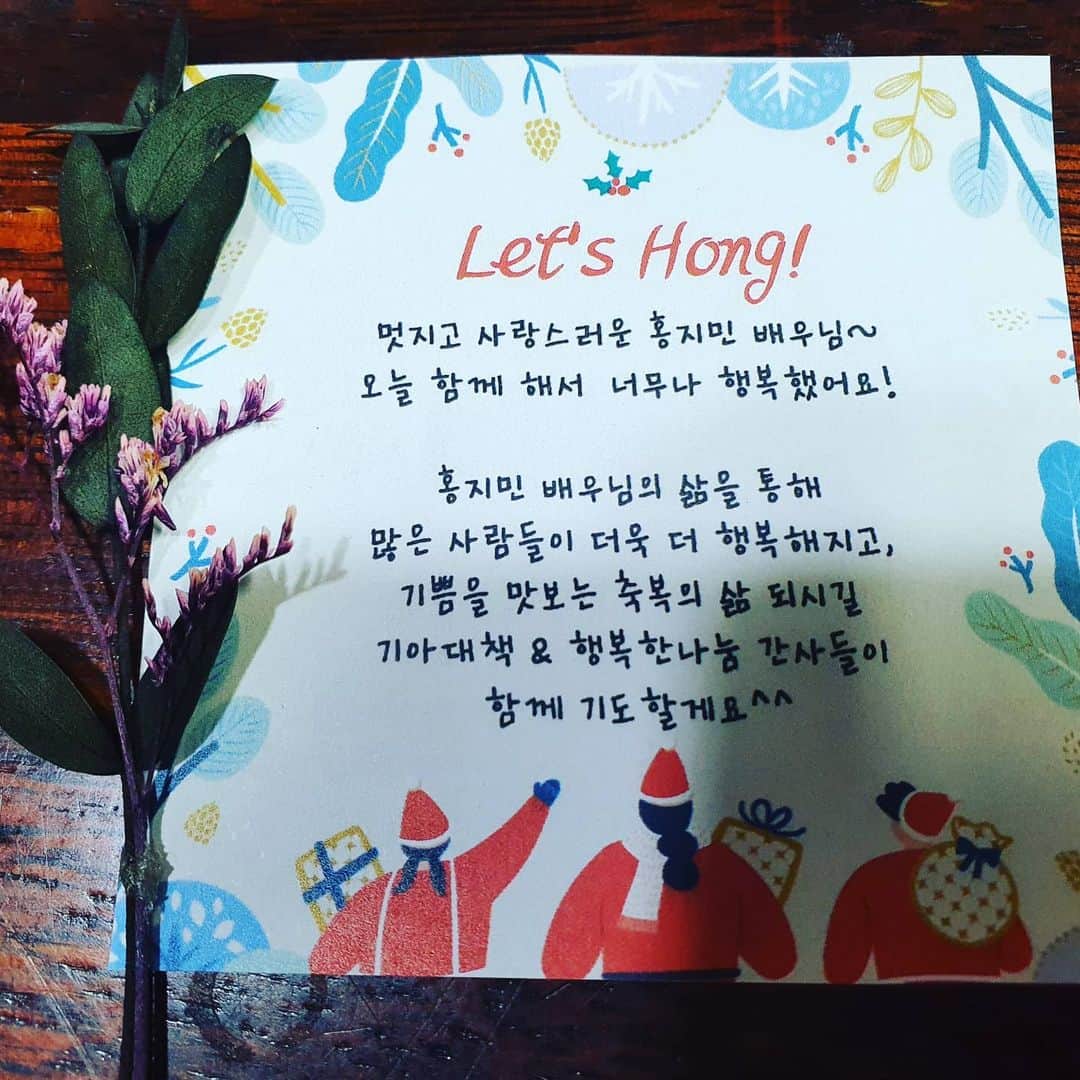 Let's Hong!
멋지고 사랑스러운 홍지민 배우님~
오늘 함께 해서 너무나 행복했어요!
홍지민 배우님의 삶을 통해
많은 사람들이 더욱 더 행복해지고,
기쁨을 맛보는 축복의 삶 되시길
기아대책 & 행복한나눔 간사들이
함께 기도할게요^^